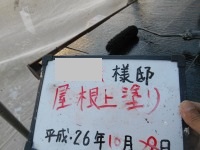 様邸
屋根上塗り
平成・26年10月28日